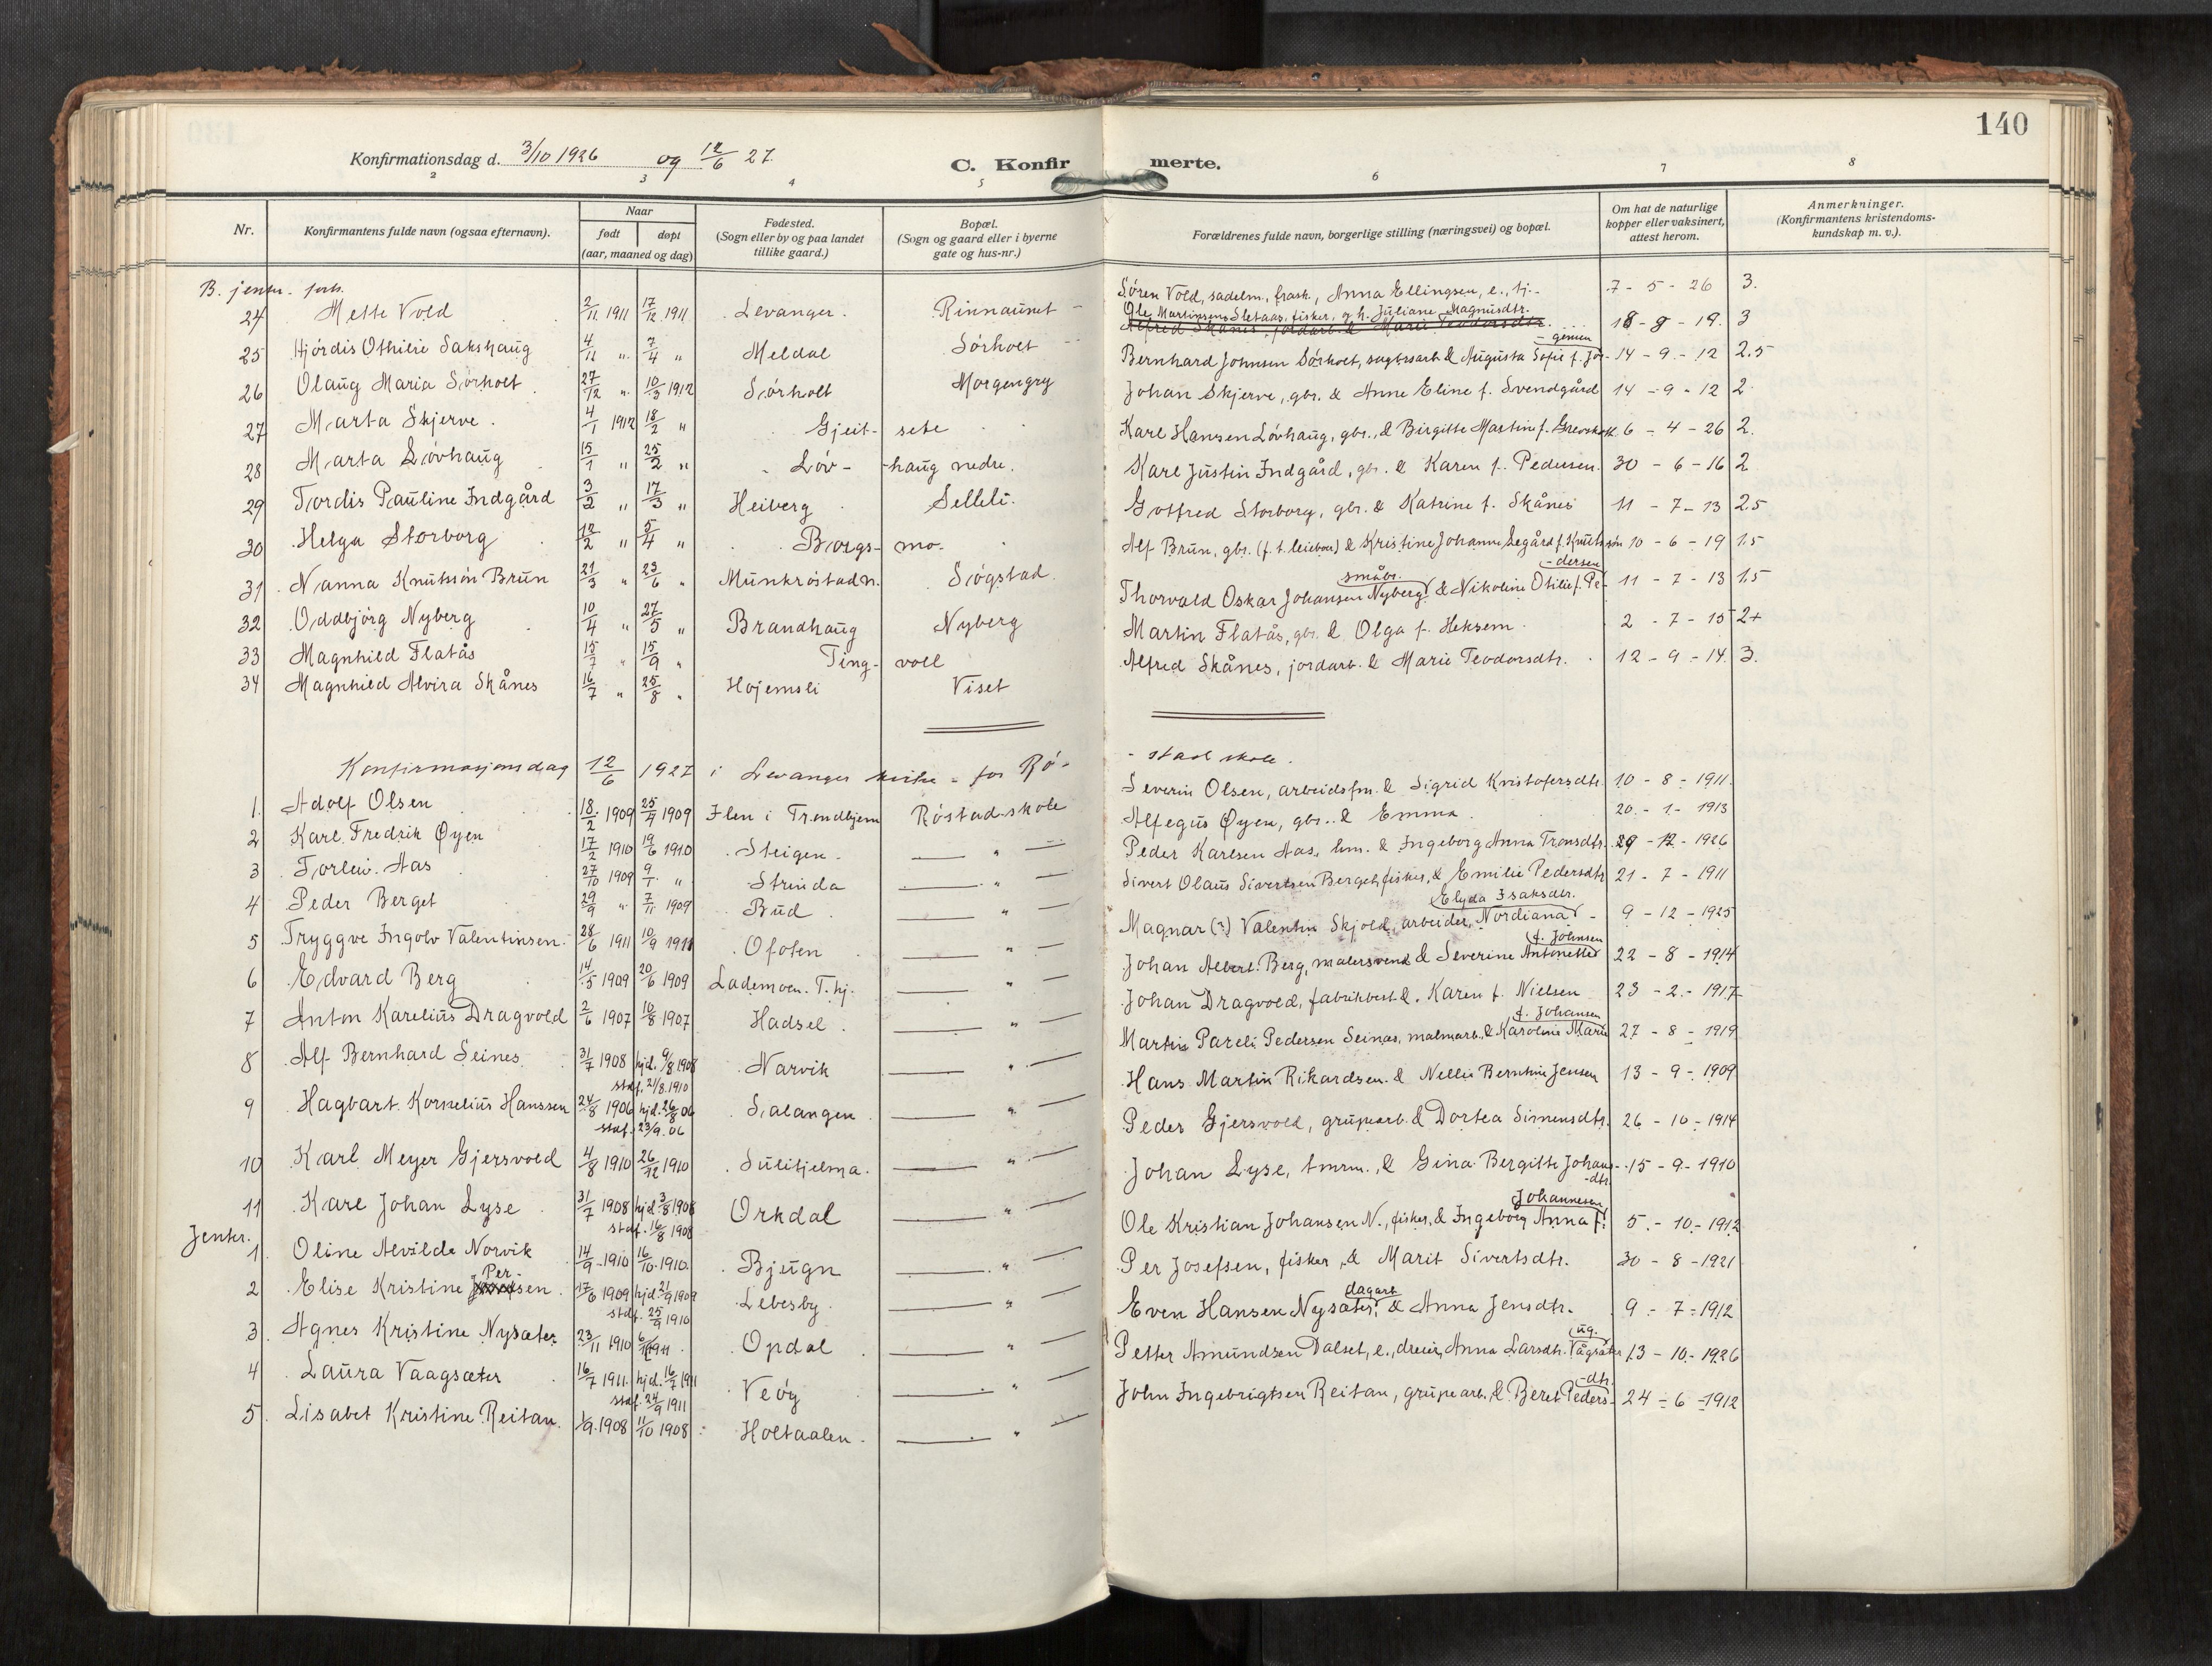 140
Konfirmationsdag d. 3/10 1926 og 12/6 27.
C. Konfirmerte.
2 3 4 5 6 7 8
Nr.
Konfirmantens fulde navn (ogsaa efternavn).
Naar
født
døpt
(aar, maaned og dag)
Fødested.
(Sogn eller by og paa landet
tillike gaard.)
Bopæl.
(Sogn og gaard eller i byerne
gate og hus-nr.)
Forældrenes fulde navn, borgerlige stilling (næringsvei) og bopæl.
Om hat de naturlige
kopper eller vaksinert,
attest herom.
Anmerkninger.
(Konfirmantens kristendoms-
kundskap m. v.).
B. jenter. forts.
24 Mette Vold 2/11 1911 17/12 1911 Levanger. Rinnaunet Søren Vold, sadelm., frask., Anna Ellingsen, e., tj. 7-5-26 3.
Ole Martinsen Sletaas, fisker, og h. Juliane Magnusdtr. 18-8-19. 3
Alfred Skånes, jordarb. & Marie Teodorsdtr.
25 Hjördis Othilie Sakshaug 4/11 " 7/4 " Meldal Sörholt
-gensen
Bernhard Johnsen Sörholt, sagbrsarb. & Augusta Sofie f. Jör- 14-9-12 2.5
26 Olaug Maria Sörholt 27/12 " 10/3 1912 Sörholt Morgengry Johan Skjerve, gbr. & Anne Eline f. Svendgård 14-9-12 2.
27 Marta Skjerve. 4/1 1912 18/2 " Gjeit- sete Karl Hansen Lövhaug, gbr., & Birgitte Martine f. 6-4-26 2.
28 Marta Lövhaug 15/1 " 25/2 " Löv- -haug nedre. Karl Justin Indgård, gbr. & Karen f. Pedersen. 30-6-16 2
29 Tordis Pauline Indgård 3/2 " 17/3 " Heiberg Selleli. Gotfred Storborg, gbr. & Katrine f. Skånes 11-7-13 2.5
30 Helga Storborg 12/2 " 5/4 " Borgs- mo. Alf Brun, gbr. (f. t. leieboer) & Kristine Johanne Legård f. Knutssön 10-6-19 1.5
31 Nanna Knutssön Brun 21/3 " 23/6 " Munkröstadn. Sögstad.
småbr. -dersen
Thorvald Oskar Johansen Nyberg & Nikoline Otilie f. Pe- 11-7-13 1.5
32 Oddbjörg Nyberg 10/4 " 27/5 " Brandhaug Nyberg Martin Flatås, gbr. & Olga f. Heksem. 2-7-15 2+
33 Magnhild Flatås 15/7 " 15/9 " Ting- voll Alfred Skånes, jordarb. & Marie Teodorsdtr. 12-9-14. 3.
34 Magnhild Alvira Skånes 16/7 " 25/8 " Hojemsli Viset
Konfirmasjonsdag 12/6 1927 i Levanger kirke - for Rö-
-stad skole.
1. Adolf Olsen 18/2 1909 25/4 1909 Ilen i Trondhjem Röstad skole Severin Olsen, arbeidsfm. & Sigrid Kristofersdtr. 10-8-1911.
2 Karl Fredrik Øyen 17/2 1910 19/6 1910 Steigen. " Alfegus Øyen, gbr. & Emma. 20.-1-1913
3 Torleiv. Aas 27/10 1909 9/1 " Strinda " Peder Karlsen Aas, hm. & Ingeborg Anna Tronsdtr. 29-12-1926
4 Peder Berget 29/9 " 7/11 1909 Bud " Sivert Olaus Sivertsen Berget, fisker, & Emilie Pedersdtr 21-7-1911
5 Tryggve Ingolv Valentinsen. 28/6 1911 10/9 1911 Ofoten "
Elyda Isaksdtr.
Magnar (?) Valentin Skjold, arbeider, Nordiana - 9-12-1925
6 Edvard Berg 14/5 1909 20/6 1909 Lademoen. T. hj. "
f. Johnsen
Johan Albert. Berg, malersvend & Severine Antonette 22-8-1914
7 Anton Karelius Dragvold 2/6 1907 10/8 1907 Hadsel. " Johan Dragvold, fabrikbest. & Karen f. Nielsen 23-2-1917
8 Alf Bernhard Seines 31/7 1908 hjd. 9/8 1908 Narvik "
staf. 21/8. 1910
f. Johansen
Martin Pareli Pedersen Seinas, malmarb. & Karoline Marie 27-8-1919
9 Hagbart. Kornelius Hanssen 24/8 1906 hjd. 26/8 06 Salangen "
staf. 23/9. 06
Hans Martin Rikardsen. & Nellie Berntine Jensen 13-9-1909
10 Karl Meyer Gjersvold 4/8 1910 26/12 1910 Sulitjelma. " Peder Gjersvold, grupearb. & Dortea Simensdtr. 26-10-1914
11 Karl Johan Lyse 31/7 1908 hjd. 3/8 1908 Orkdal "
stadf. 16/8 1908
Johan Lyse, tmrm., & Gina Bergitte Johans- 15-9-1910
-dtr.
Jenter.
1. Oline Alvilde Norvik 14/9-1910 16/10. 1910. Bjugn "
Johannesen
Ole Kristian Johansen N., fisker, & Ingeborg Anna f. 5.-10-1912
2 Elise Kristine Persen. 17/6 1909 hjd. 21/9 1909 Lebesby. "
stadf. 25/9 1910
Per Josefsen, fisker, & Marit Sivertsdtr. 30-8-1921
3. Agnes Kristine Nysæter 23/11 1910 1911. Opdal "
dagarb.
Even Hansen Nysæter, & Anna Jensdtr. 9.-7-1912
4 Laura Vaagsæter 16/7 1911. hjd. 16/7 1911 Veöy "
stadf. 24/9 1911
ug.
Petter Amundsen Dalset, e., dreier, Anna Larsdtr. Vågsæter 13-10-1926
5. Lisabet Kristine Reitan. 1/9. 1908 11/10 1908 Holtaalen. "
-dtr.
John Ingebrigtsen Reitan, grupearb. & Beret Peders- 24-6-1912